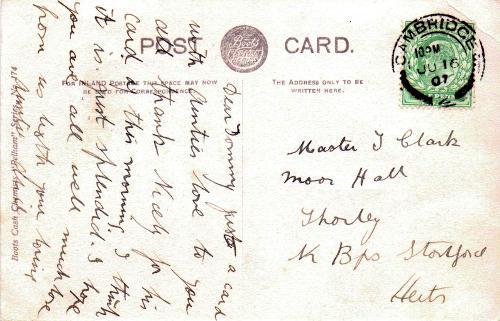 POST CARD.
Boots Cash Chemists
FOR INLAND POSTAGE THIS SPACE MAY NOW
BE USED FOR CORRESPONDENCE.
THE ADDRESS ONLY TO BE
WRITTEN HERE.
CAMBRIDGE
10 PM
JU 16
07
Boots Cash Chemists "Pelham" Series
Dear Tommy just a card
with Aunties love to you
all thanks Nicely for his
card this morning. I think
it is just splendid. I hope
you are all well much love
from us both your loving
Master T Clark
Moor Hall
Thorley
Nr Bps Stortford
Herts